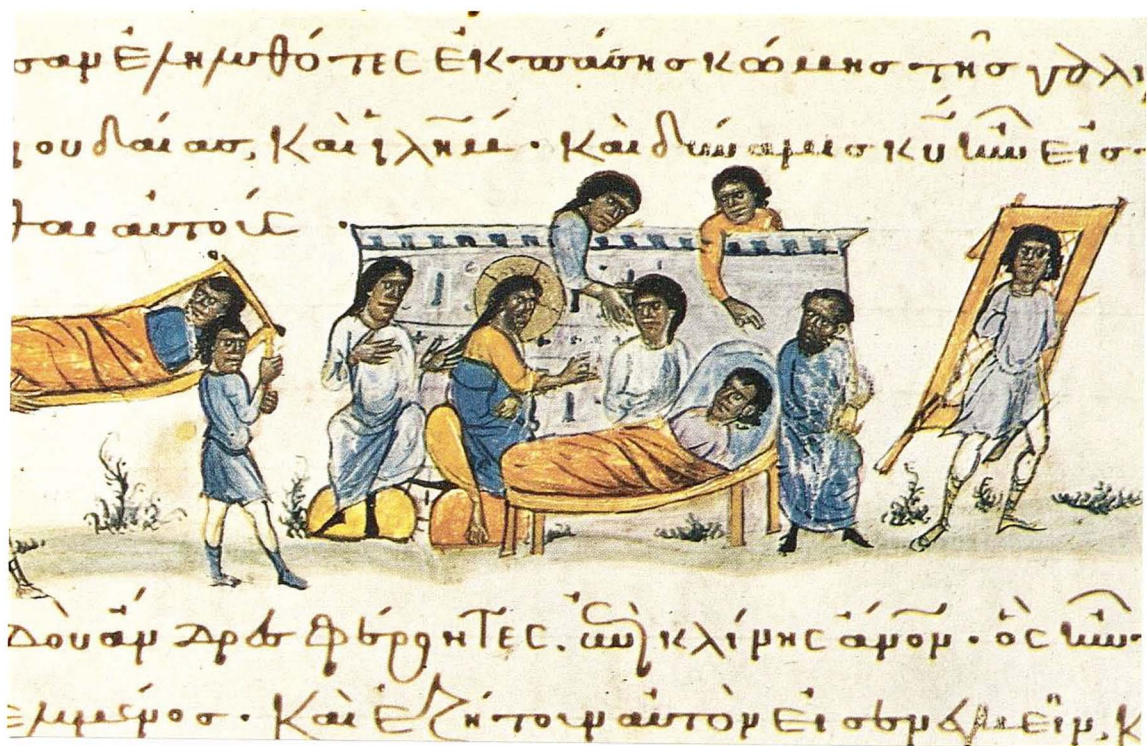 σαν ἐληλυθότες ἐκ πάσης κώμης τῆς γαλι
ιουδαίας, καὶ ἰλῆμ · καὶ δύναμις κ̅υ̅ ἦν εἰσ
θαι αὐτούς ·
δοὺ ἄνδρες φέροντες, ἐπὶ κλίνης ἄν̅ο̅ν · ὃς ἦν
ελυμένος · καὶ ἐζήτουν αὐτὸν εἰσενεγκεῖν, κ